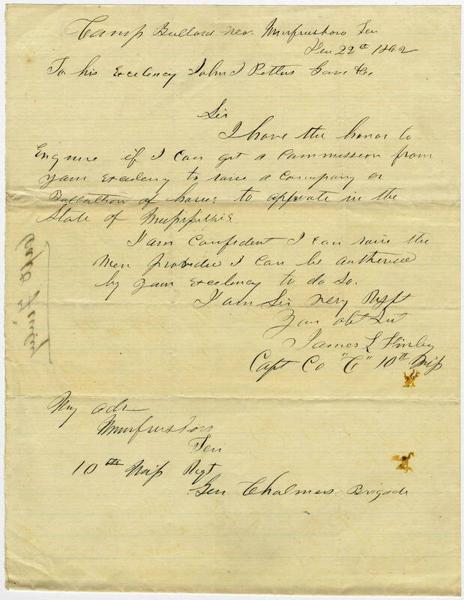 Camp Bullard near Murfreesboro Ten
Dec 22nd 1862
To his Excelency John J Pettus Gove &c
Sir
I have the honor to
Enquire if I can get a Commission from
your Excelency to raise a Company or
Battallion of horse to opperate in the
State of Mississippi
I am Confident I can raise the
Men provided I can be authorised
by your Excelency to do so.
I am Sir very Resft
Your obt Svt
James L Finley
Capt Co "C" 10th Miss
My adr
Murfreesboro
Ten
10th Miss Regt
Gen Chalmers Brigade